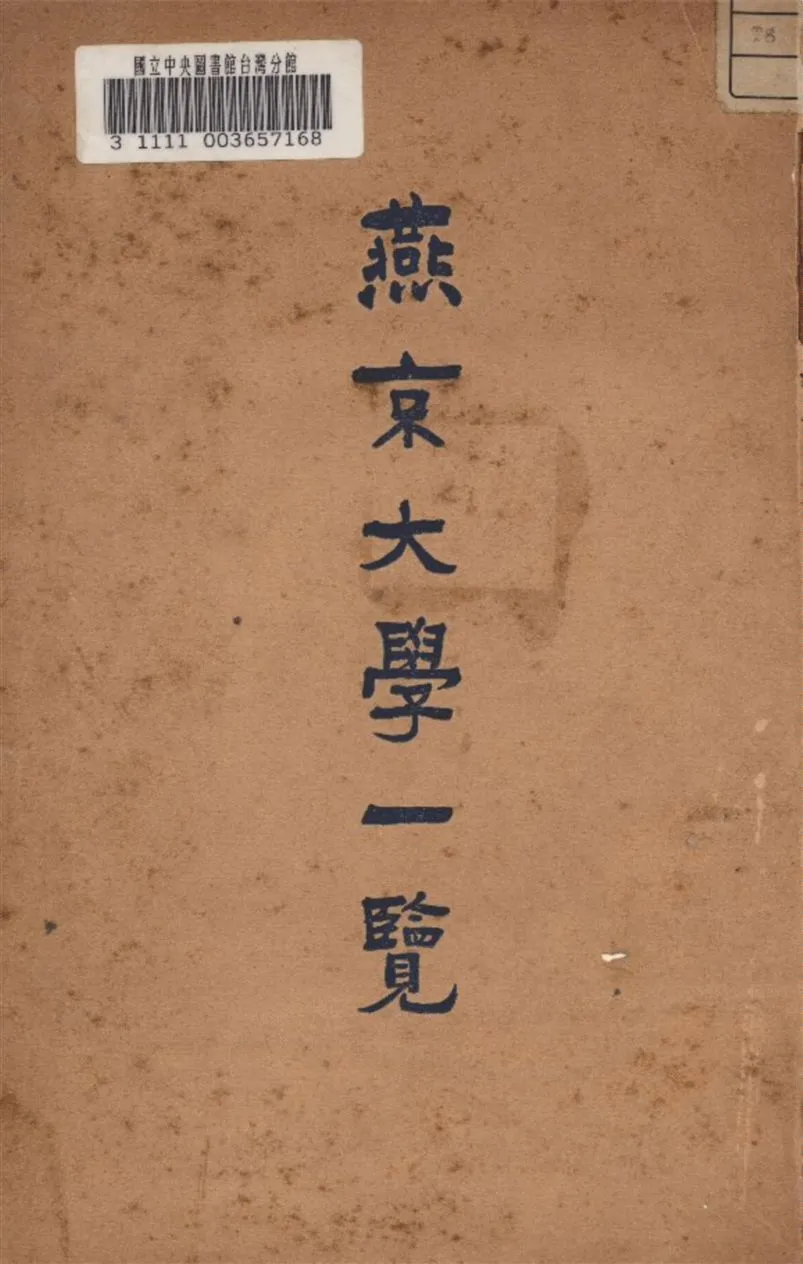 國立中央圖書館台灣分館
3 1111 003657168
燕京大學一覽